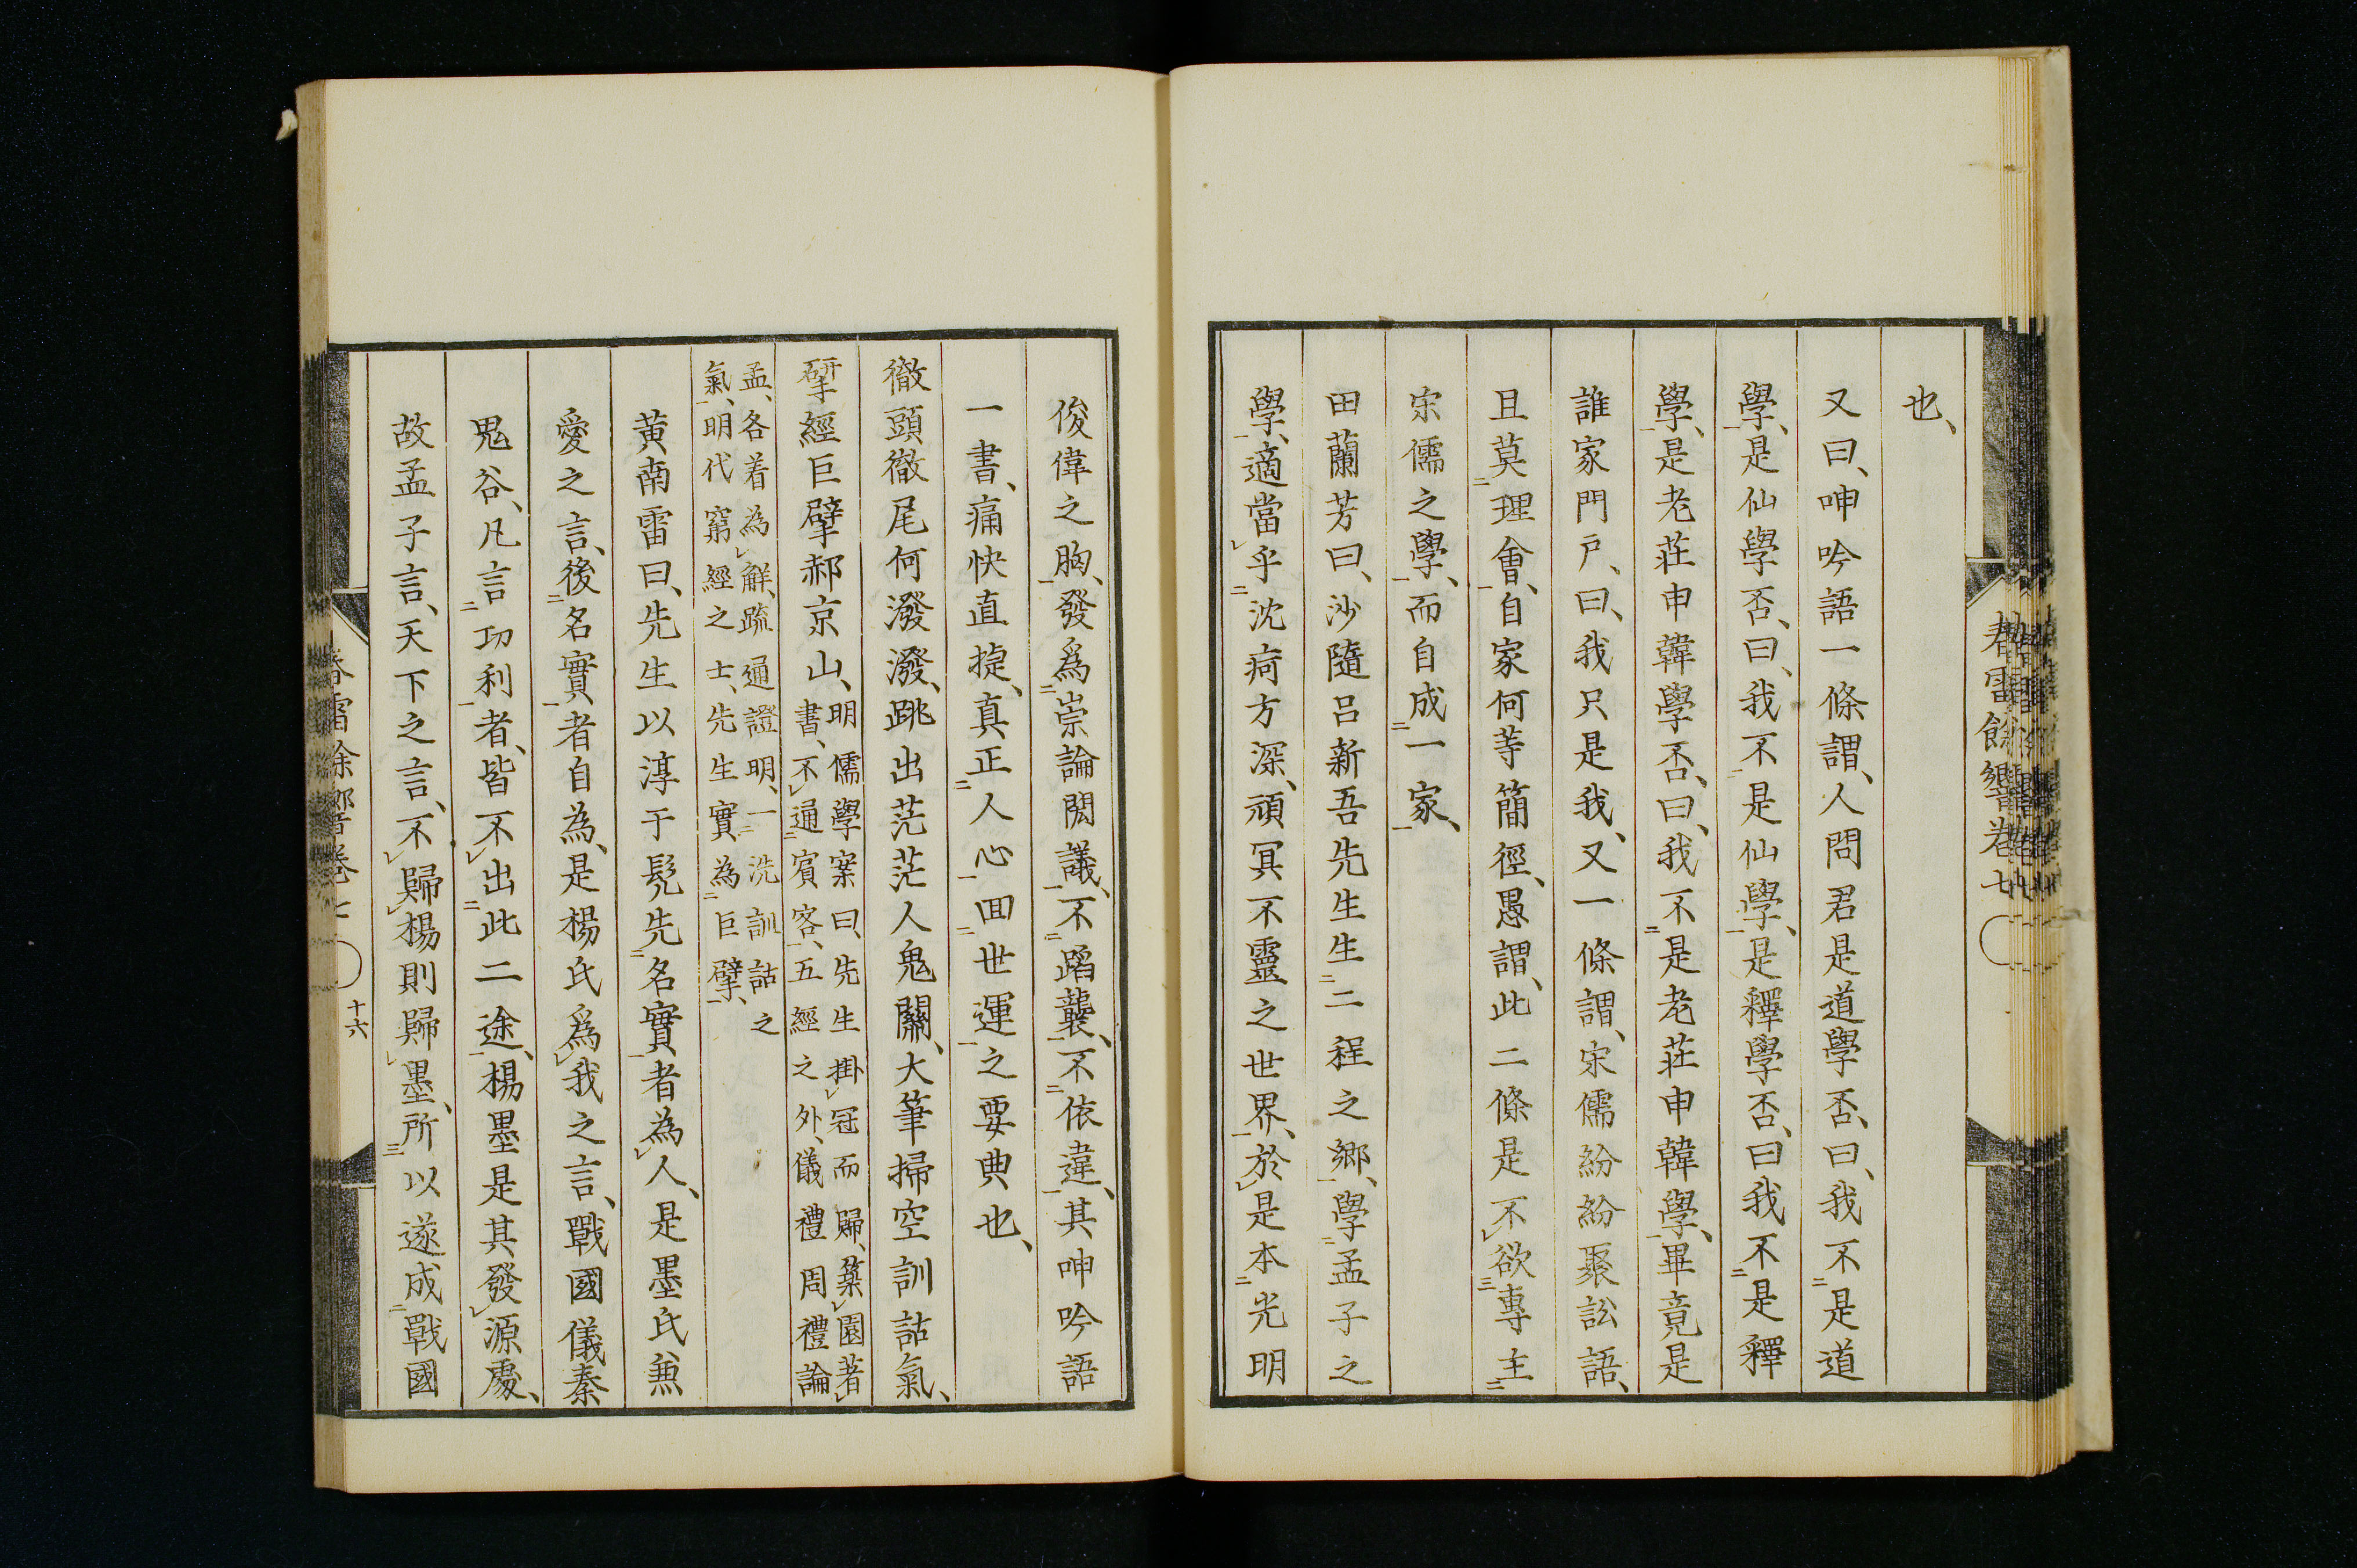 也、
又曰、呻吟語一條謂、人問君是道學否、曰、我不㆓是道
學㆒、是仙學否、曰、我不㆓是仙學㆒、是釋學否、曰我不㆓是釋
學㆒、是老莊申韓學否、曰、我不㆓是老莊申韓學㆒、畢竟是
誰家門戶、曰、我只是我、又一條謂、宋儒紛紛聚訟語、
且莫㆓理會㆒、自家何等簡徑、愚謂、此二條是不㆑欲㆔專主㆓
宋儒之學㆒、而自成㆓一家㆒、
田蘭芳曰、沙隨呂新吾先生生㆓二程之鄉㆒、學㆓孟子之
學㆒、適當㆑乎㆓沈痾方深、頑冥不靈之世界㆒、於㆑是本㆓光明
俊偉之胸㆒、發爲㆓崇論閎議㆒、不㆓蹈襲㆒、不㆓依違㆒、其呻吟語
一書、痛快直捷、眞正㆓人心㆒回㆓世運㆒之要典也、
徹頭徹尾何潑潑、跳出茫茫人鬼關、大筆掃空訓詁氣、
揅經巨擘郝京山、
明儒學案曰、先生掛㆑冠而歸、築㆑園著㆑
書、不㆑通㆓賓客㆒、五經之外、儀禮周禮論
孟、各着為㆑解、疏通證明、一㆓洗訓詁之
氣㆒、明代窮經之士、先生實為㆓巨擘㆒、
黃南雷曰、先生以淳于髡先㆓名實㆒者為㆑人、是墨氏兼
愛之言、後㆓名實㆒者自為、是楊氏爲㆑我之言、戰國儀秦
鬼谷、凡言㆓功利㆒者、皆不㆑出㆓此二途㆒、楊墨是其發㆑源處、
故孟子言、天下之言、不㆑歸㆑楊則歸㆑墨、所㆔以遂成㆓戰國
春雷餘響卷七
十六